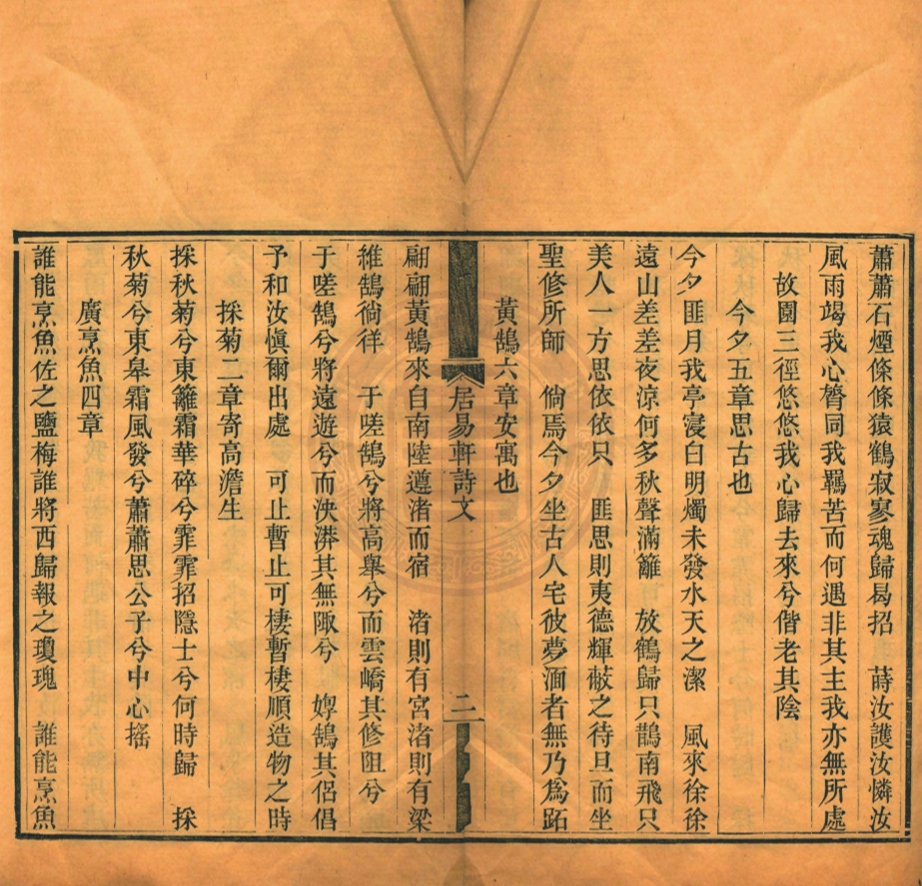 蕭蕭石煙條條猿鶴寂寥魂歸曷招　蒔汝護汝憐汝
風雨竭我心膂同我羈苦而何遇非其主我亦無所處
故園三徑悠悠我心歸去來兮偕老其陰
今夕五章思古也
今夕匪月我亭寖白明燭未發水天之潔　風來徐徐
遠山差差夜涼何多秋聲滿籬　放鶴歸只鵲南飛只
美人一方思依依只　匪思則夷德輝蔽之待旦而坐
聖修所師　倘焉今夕坐古人宅彼夢湎者無乃為跖
黃鵠六章安寓也
翩翩黃鵠來自南陸遵渚而宿　渚則有宮渚則有梁
維鵠徜徉　于嗟鵠兮將高舉兮而雲嶠其修阻兮
于嗟鵠兮將遠遊兮而泱漭其無陬兮　婗鵠其侶倡
予和汝慎爾出處　可止暫止可棲暫棲順造物之時
採菊二章寄高澹生
採秋菊兮東籬霜華碎兮霏霏招隱士兮何時歸　採
秋菊兮東皋霜風發兮蕭蕭思公子兮中心搖
廣烹魚四章
誰能烹魚佐之鹽梅誰將西歸報之瓊瑰　誰能烹魚
居易軒詩文
二